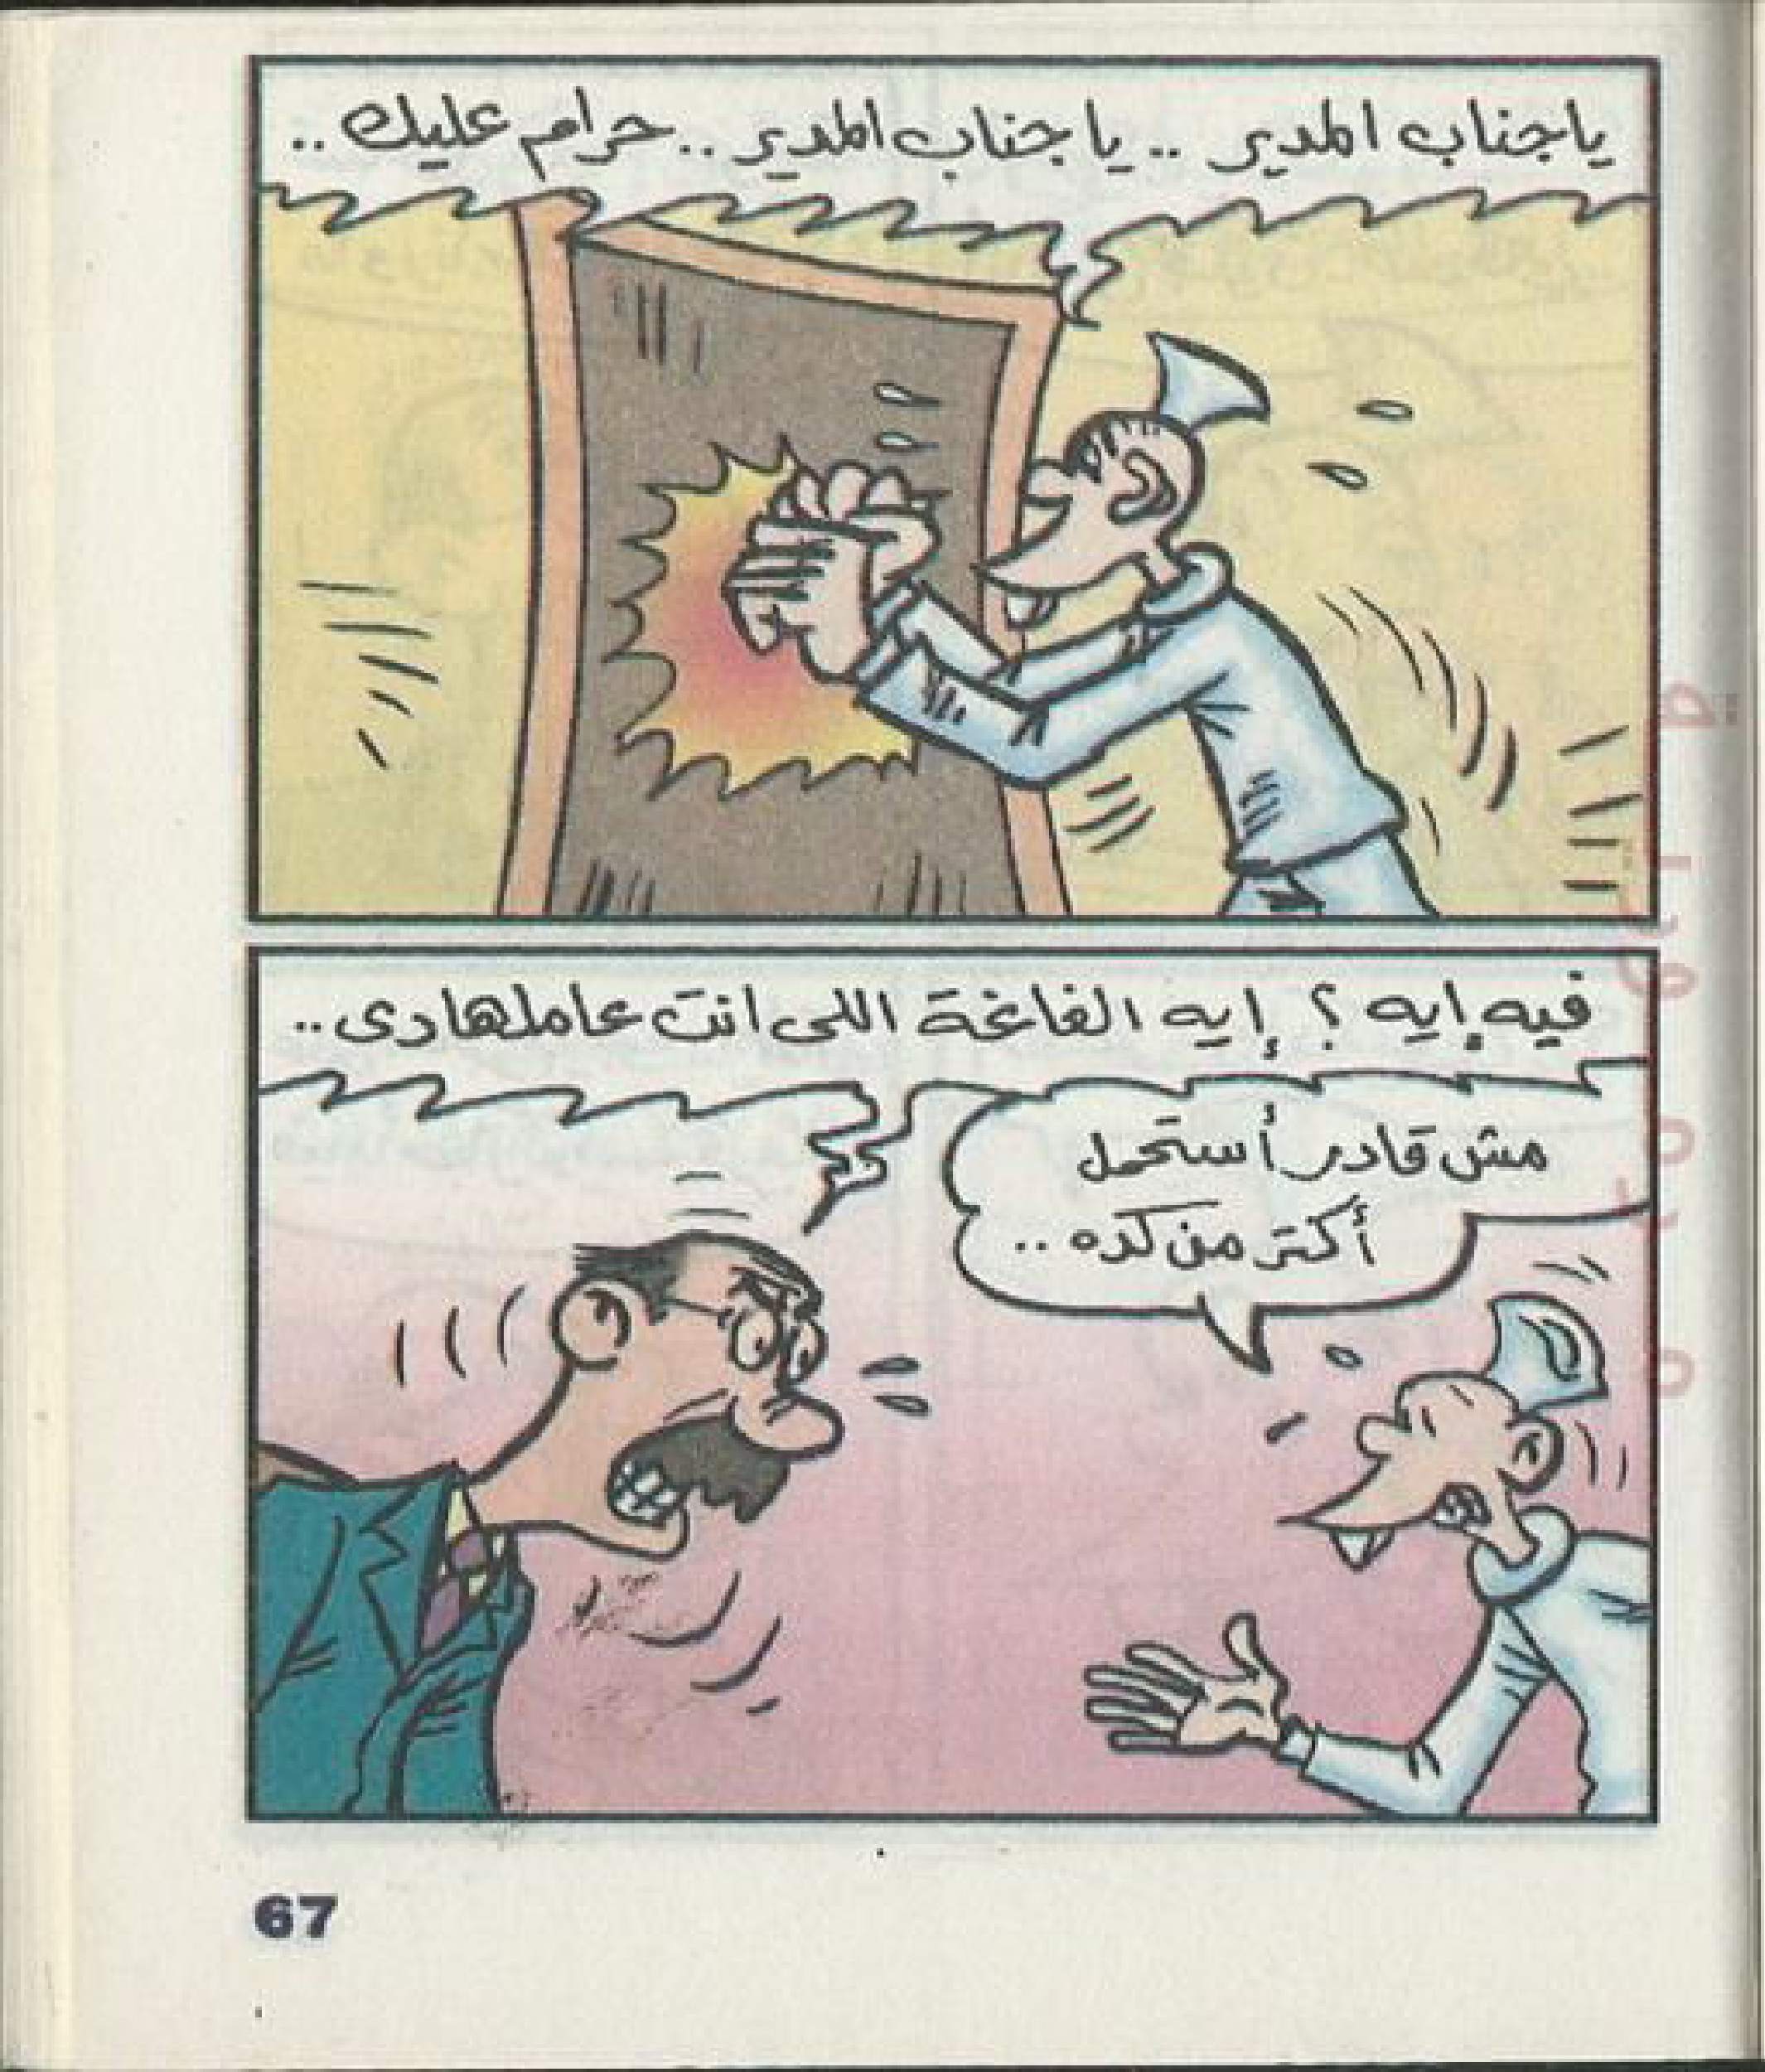 ياجناب المدير .. ياجناب المدير .. حرام عليك ..
فيه إيه ؟ إيه الغاغة اللى انت عاملها دى ..
مش قادر أستحمل
أكتر من كده ..
67